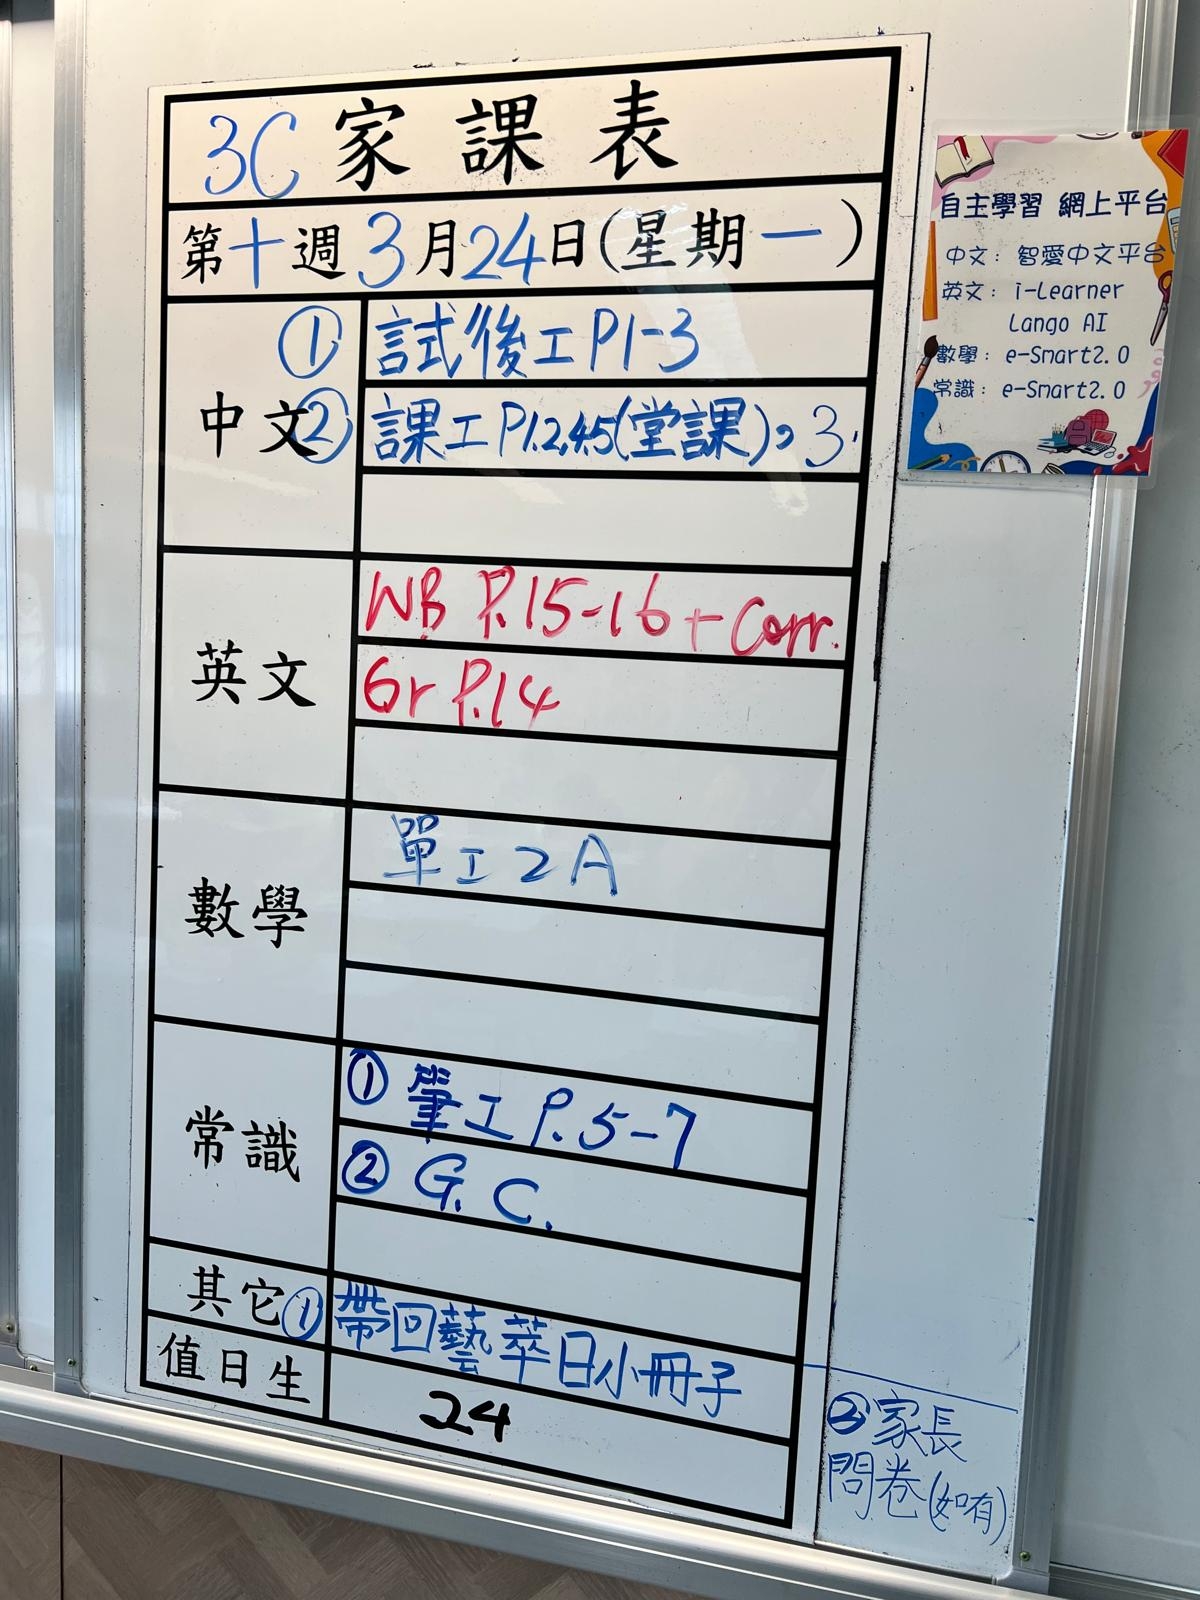 3C 家課表
第十週 3月24日(星期一)
中文
① 試後工 P1-3
② 課工 P1,2,4,5(堂課)、3.
英文
WB P.15-16 + Corr.
Gr P.14
數學
單工 2A
常識
① 筆工 P.5-7
② G.C.
其它 ① 帶回藝萃日小冊子
② 家長
問卷(如有)
值日生
24
自主學習 網上平台
中文： 智愛中文平台
英文： i-Learner
Lango AI
數學： e-Smart2.0
常識： e-Smart2.0